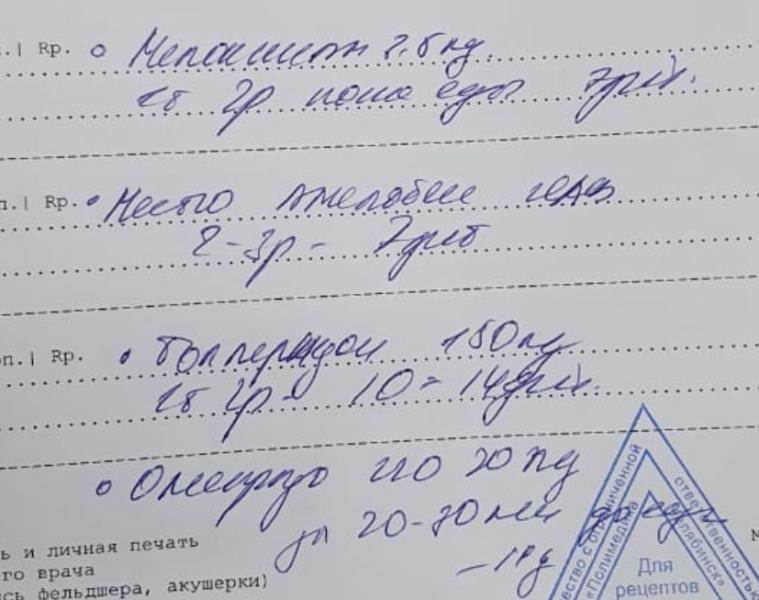 .| Rp. Мелоксикам 7.5 мг
1т 2р после еды 7 дней.
п.| Rp. Место
2-3р - 7 дней
оп.| Rp. Толперизон 150 мг
1т 2р - 10-14 дней
Омепразол 20 мг
за 20-30 мин до еды
- 1 р/д
ь и личная печать
го врача
сь фельдшера, акушерки)
М
ество с ограниченной
ответственностью
«Полимедика
Челябинск»
Для
рецептов